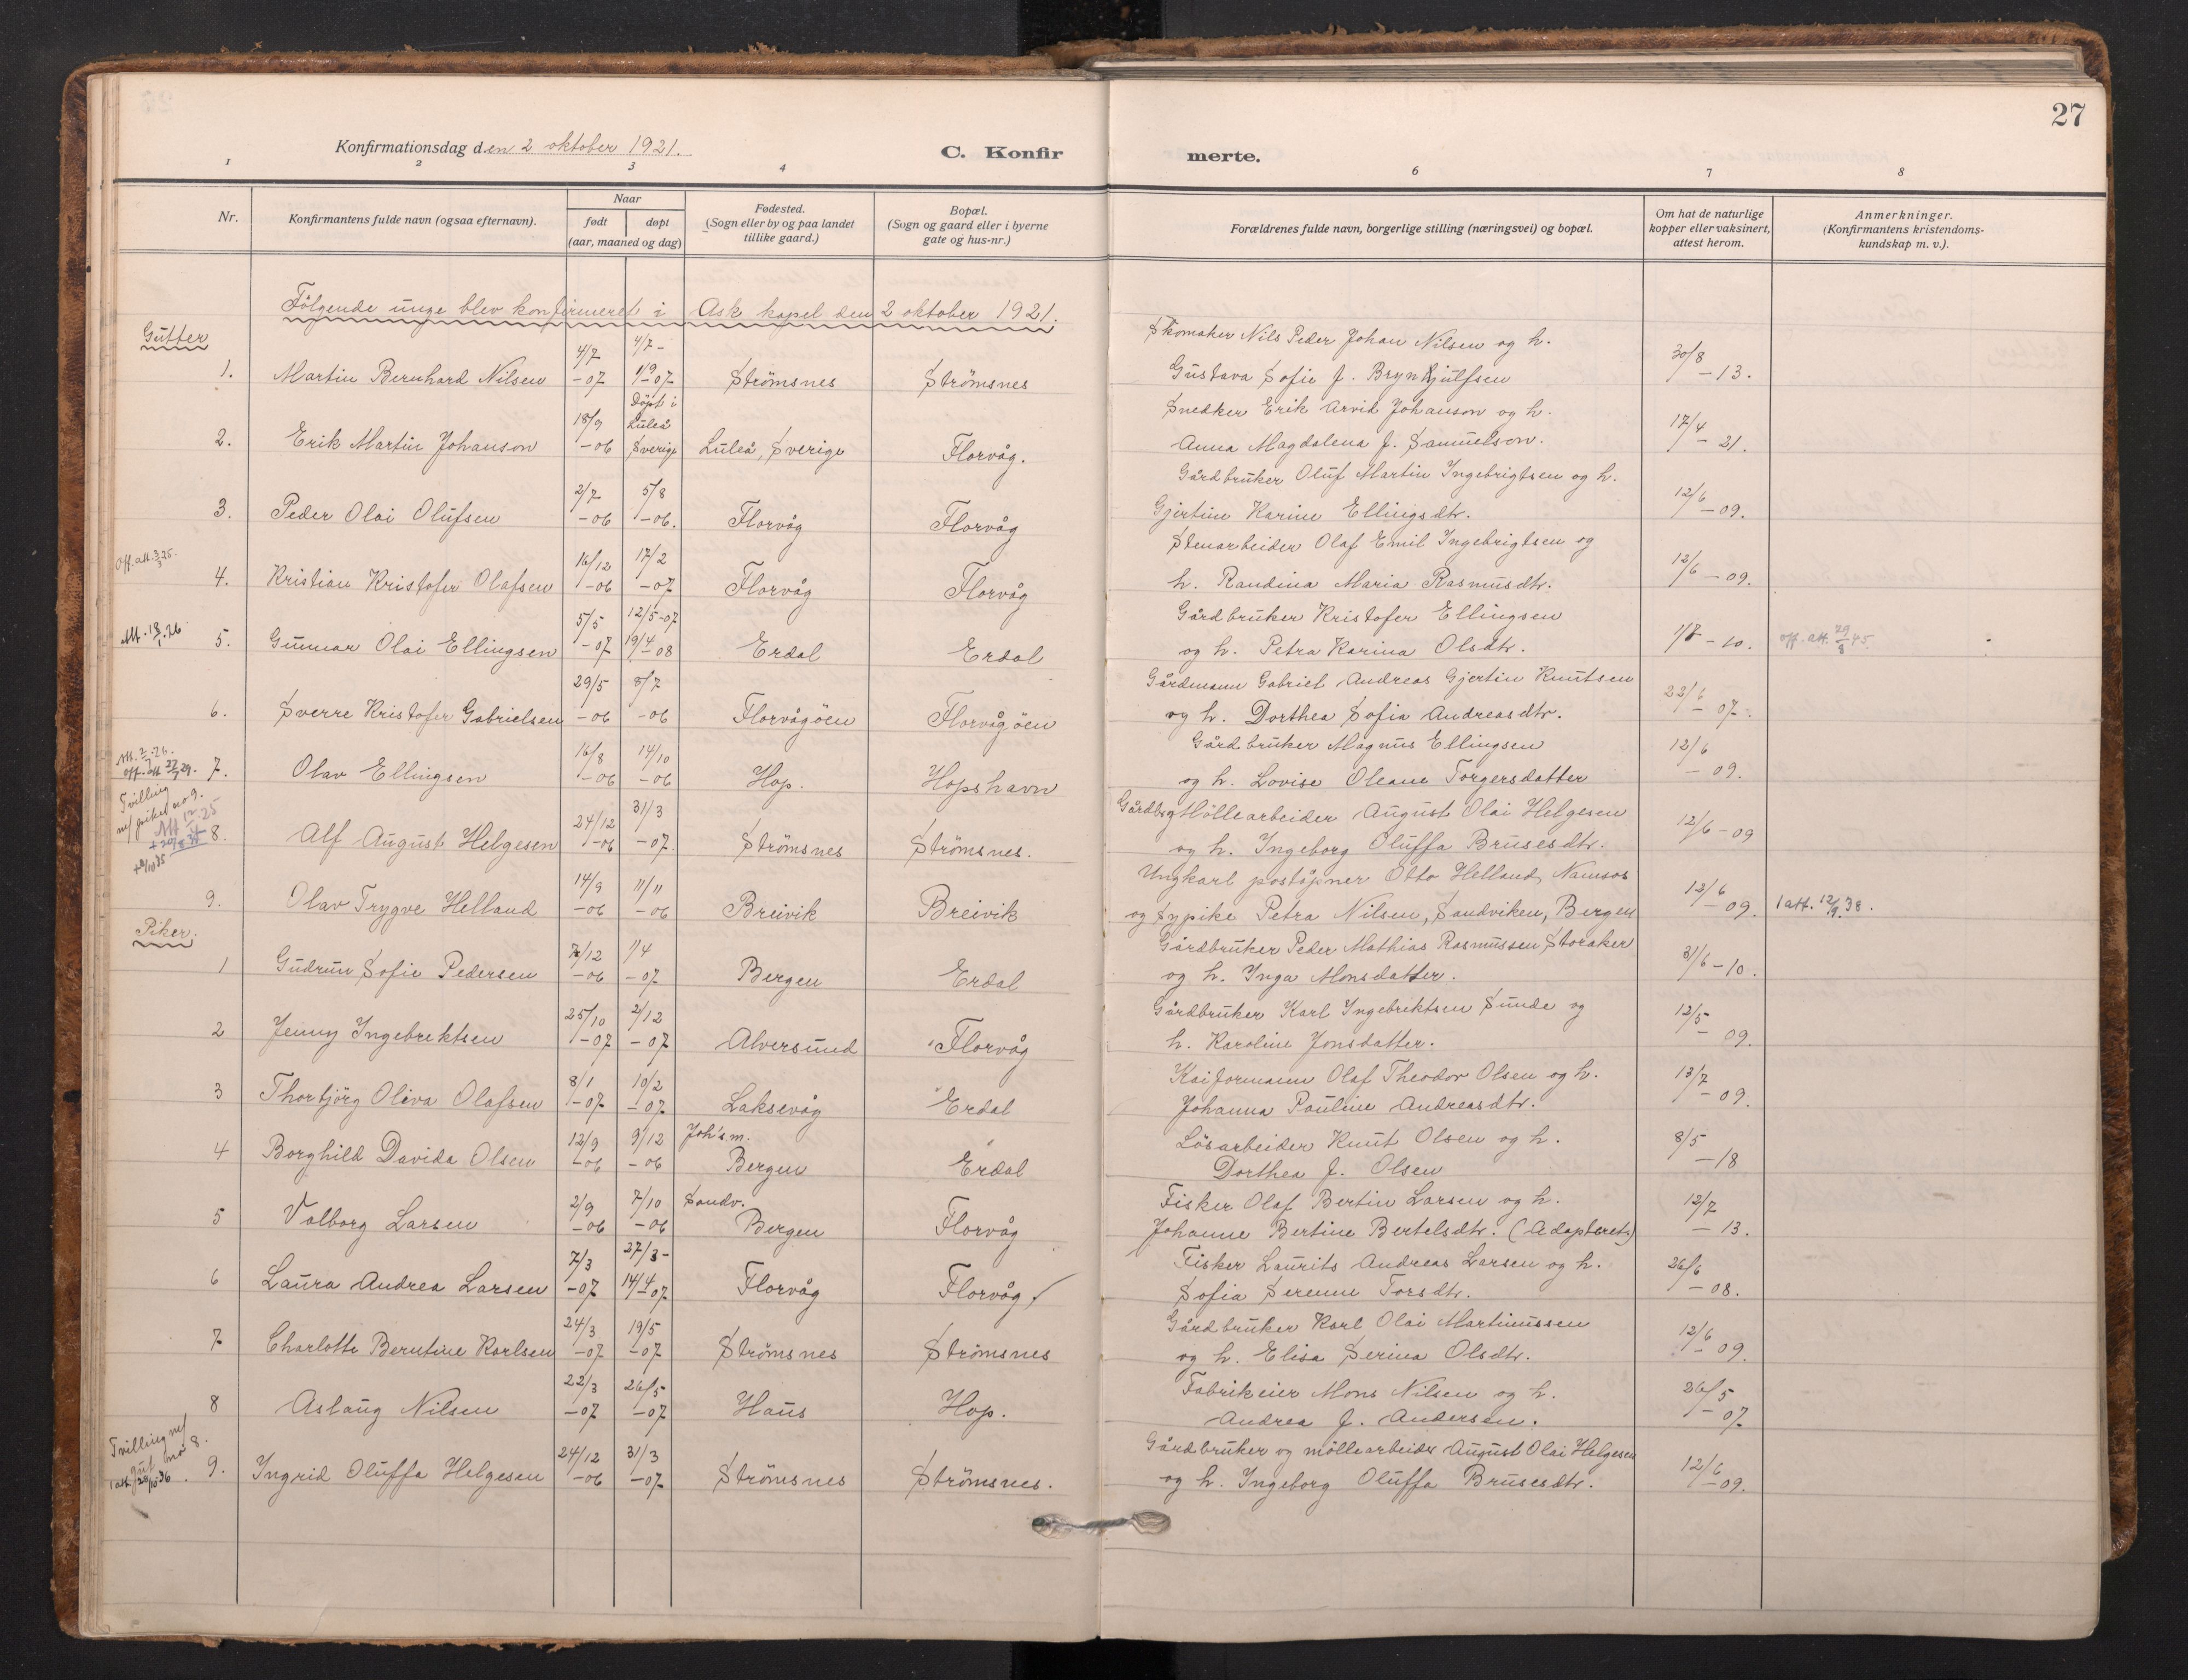 27
Konfirmationsdag den 2 oktober 1921.
C. Konfir
merte.
1 2 3 4 6 7 8
Nr.
Konfirmantens fulde navn (ogsaa efternavn).
Naar
født døpt
(aar, maaned og dag)
Fødested.
(Sogn eller by og paa landet
tillike gaard.)
Bopæl.
(Sogn og gaard eller i byerne
gate og hus-nr.)
Forældrenes fulde navn, borgerlige stilling (næringsvei) og bopæl.
Om hat de naturlige
kopper eller vaksinert,
attest herom.
Anmerkninger.
(Konfirmantens kristendoms-
kundskap m. v.).
Følgende unge blev konfirmeret i Ask kapel den 2 oktober 1921.
Gutter
4/7 4/7 - Skomaker Nils Peder Johan Nilsen og h. 30/8
1. Martin Bernhard Nilsen -07 1/9-07 Strömsnes Strömsnes Gustava Sofie f. Brynhjulfsen -13.
18/9 Döpt i Luleå Snedker Erik Arvid Johanson og h. 17/4
2. Erik Martin Johanson -06 Sverige Luleå, Sverige Florvåg. Anna Magdalena f. Samuelson. -21.
2/7 5/8 Gårdbruker Oluf Martin Ingebrigtsen og h. 12/6
3. Peder Olai Olufsen -06 -06. Florvåg Florvåg Gjertine Karine Ellingsdtr. -09.
Off. att. 3/3 25. 16/12 17/2 Stenarbeider Olaf Emil Ingebrigtsen og
4. Kristian Kristofer Olafsen -06 -07 Florvåg Florvåg h. Randina Maria Rasmusdtr. 12/6 -09.
5/5 12/5-07 Gårdbruker Kristofer Ellingsen
Att. 18/1 26 5. Gunnar Olai Ellingsen -07 19/4 08 Erdal Erdal og h. Petra Karina Olsdtr. 1/8 -10. off. att. 29/8 45.
29/5 8/7 Gårdmann Gabriel Andreas Gjertin Knutsen 22/6
6. Sverre Kristofer Gabrielsen -06 -06 Florvågöen Florvågöen og h. Dorthea Sofia Andreasdtr. -07.
Att. 2/7 26. 16/8 14/10 Gårdbruker Magnus Ellingsen 12/6
off. att 27/7 29. 7. Olav Ellingsen -06 -06 Hop. Hopshavn og h. Lovise Oleane Torgersdatter -09.
Tvilling m/ piker no 9. 24/12 31/3 Gårdb. og Möllearbeider August Olai Helgesen
8. Alf August Helgesen -06 -07. Strömsnes Strömsnes. og h. Ingeborg Oluffa Brusesdtr. 12/6 -09
14/9 11/11 Ungkarl postöpner Otto Helland, Namsos 12/6
9. Olav Trygve Helland -06 -06 Breivik Breivik og Sypike Petra Nilsen, Sandviken, Bergen -09. 1 att. 12/9.38.
Piker.
7/12 1/4 Gårdbruker Peder Mathias Rasmussen Storaker
1 Gudrun Sofie Pedersen -06 -07 Bergen Erdal og h. Inga Monsdatter. 31/6 -10.
25/10 2/12 Gårdbruker Karl Ingebriktsen Sunde og 12/5
2 Jenny Ingebrektsen -07 -07 Alversund Florvåg h. Karoline Jonsdatter. -09.
8/1 10/2 Kaiformann Olaf Theodor Olsen og h. 13/7
3 Thorbjörg Oliva Olafsen -07 -07 Laksevåg Erdal Johanna Pauline Andreasdtr. -09.
12/9 9/12 Joh's m. Lösarbeider Knut Olsen og h. 8/5
4 Borghild Davida Olsen -06 -06 Bergen Erdal Dorthea f. Olsen -18
2/9 7/10 Sandv. Fisker Olaf Bertin Larsen og h. 12/7
5 Valborg Larsen -06 -06 Bergen Florvåg Johanne Bertine Bertelsdtr. (Adopterets) -13.
7/3 27/3- Fisker Laurits Andreas Larsen og h. 26/6
6 Laura Andrea Larsen -07 14/4 07 Florvåg Florvåg Sofia Serenne Torsdtr. -08.
24/3 19/5 Gårdbruker Karl Olai Martinussen 12/6
7 Charlotte Berntine Karlsen -07 -07 Strömsnes Strömsnes og h. Elisa Serina Olsdtr. -09.
22/3 26/5 Fabrikeier Mons Nilsen og h. 26/5
8 Aslaug Nilsen -07 -07 Haus Hop. Andrea f. Andersen. -07.
Tvilling m/ gut no 8. 24/12 31/3 Gårdbruker og möllearbeider August Olai Helgesen 12/6
1 att. 28/10 36. 9. Ingrid Oluffa Helgesen -06 -07 Strömsnes Strömsnes. og h. Ingeborg Oluffa Brusesdtr. -09.